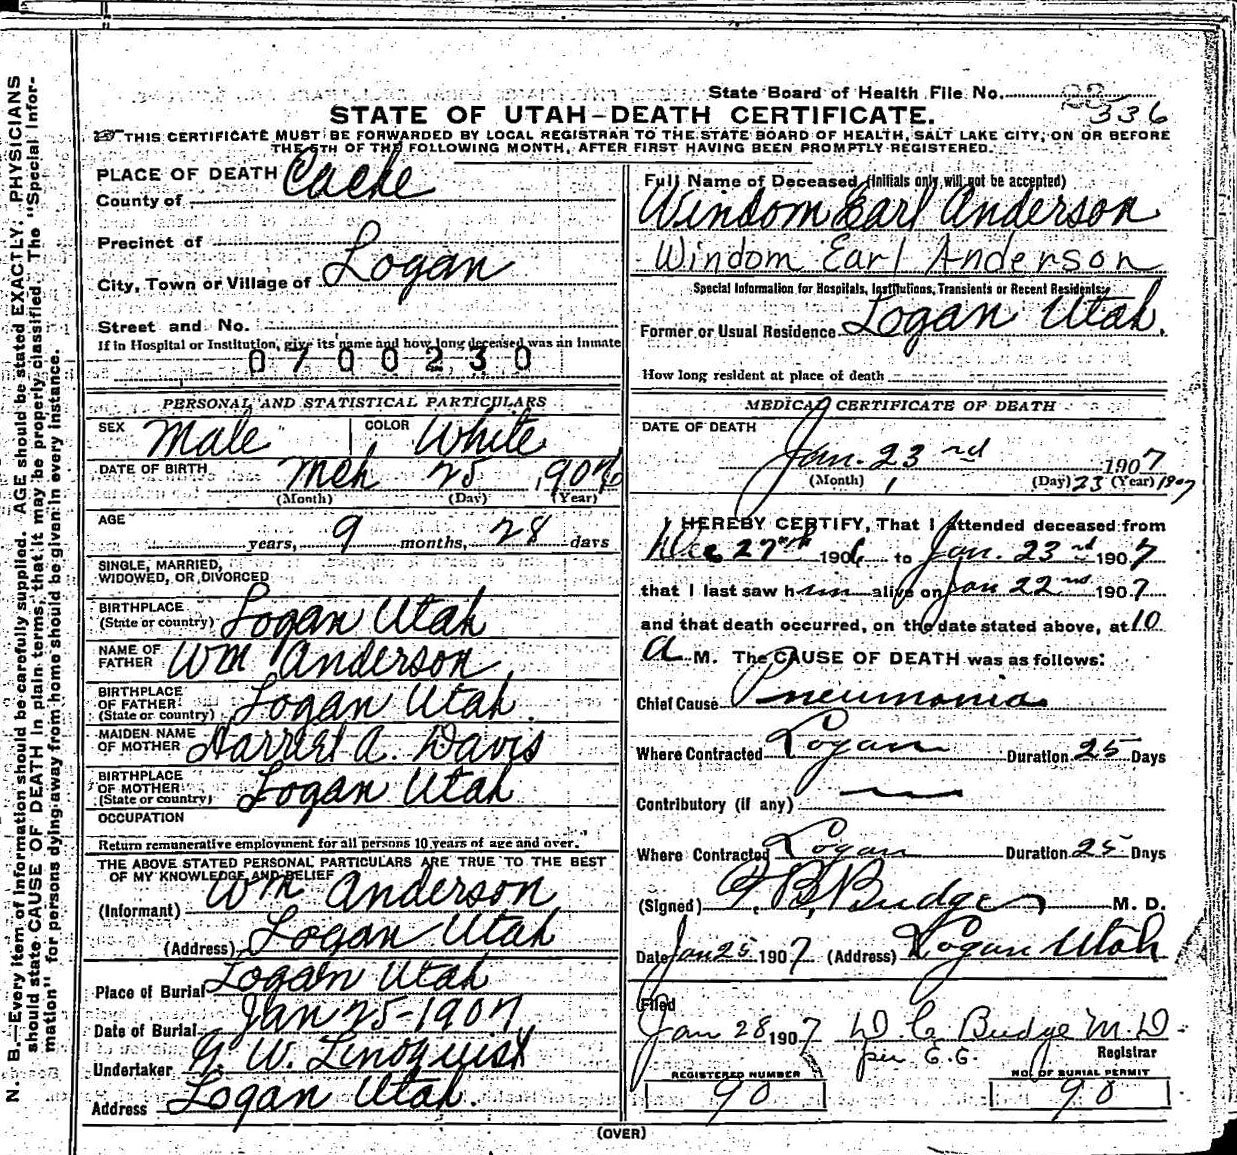 State Board of Health File No. 22
336
STATE OF UTAH-DEATH CERTIFICATE.
THIS CERTIFICATE MUST BE FORWARDED BY LOCAL REGISTRAR TO THE STATE BOARD OF HEALTH, SALT LAKE CITY, ON OR BEFORE
THE 5TH OF THE FOLLOWING MONTH, AFTER FIRST HAVING BEEN PROMPTLY REGISTERED.
N. B.—Every item of information should be carefully supplied. AGE should be stated EXACTLY. PHYSICIANS
should state CAUSE OF DEATH in plain terms, that it may be properly classified. The "Special Infor-
mation" for persons dying away from home should be given in every instance.
PLACE OF DEATH
County of Cache
Precinct of
City, Town or Village of Logan
Street and No.
If in Hospital or Institution, give its name and how long deceased was an Inmate
0700230
PERSONAL AND STATISTICAL PARTICULARS
SEX Male COLOR White
DATE OF BIRTH Mch 25 190
(Month) (Day) (Year)
AGE
years, 9 months, 28 days
SINGLE, MARRIED,
WIDOWED, OR DIVORCED
BIRTHPLACE
(State or country) Logan Utah
NAME OF
FATHER Wm Anderson
BIRTHPLACE
OF FATHER
(State or country) Logan Utah
MAIDEN NAME
OF MOTHER Harriet A. Davis
BIRTHPLACE
OF MOTHER
(State or country) Logan Utah
OCCUPATION
Return remunerative employment for all persons 10 years of age and over.
THE ABOVE STATED PERSONAL PARTICULARS ARE TRUE TO THE BEST
OF MY KNOWLEDGE AND BELIEF
(Informant) Wm Anderson
(Address) Logan Utah
Place of Burial Logan Utah
Date of Burial Jan 25-1907
Undertaker W. Lindquist
Address Logan Utah.
Full Name of Deceased (Initials only will not be accepted)
Windom Earl Anderson
Windom Earl Anderson
Special Information for Hospitals, Institutions, Transients or Recent Residents:
Former or Usual Residence Logan Utah.
How long resident at place of death
MEDICAL CERTIFICATE OF DEATH
DATE OF DEATH
Jan. 23rd 1907
(Month) 1 (Day) 23 (Year) 1907
I HEREBY CERTIFY, That I attended deceased from
Dec 27th 1906 to Jan. 23rd 1907
that I last saw him alive on Jan 22nd 1907
and that death occurred, on the date stated above, at 10
A M. The CAUSE OF DEATH was as follows:
Chief Cause Pneumonia
Where Contracted Logan Duration 25 Days
Contributory (if any)
Where Contracted Logan Duration 25 Days
(Signed) B. Budge M. D.
Date Jan 25 1907 (Address) Logan Utah
Filed
Jan 28 1907 D. C. Budge M.D.
per E.G. Registrar
REGISTERED NUMBER
90
NO. OF BURIAL PERMIT
90
(OVER)